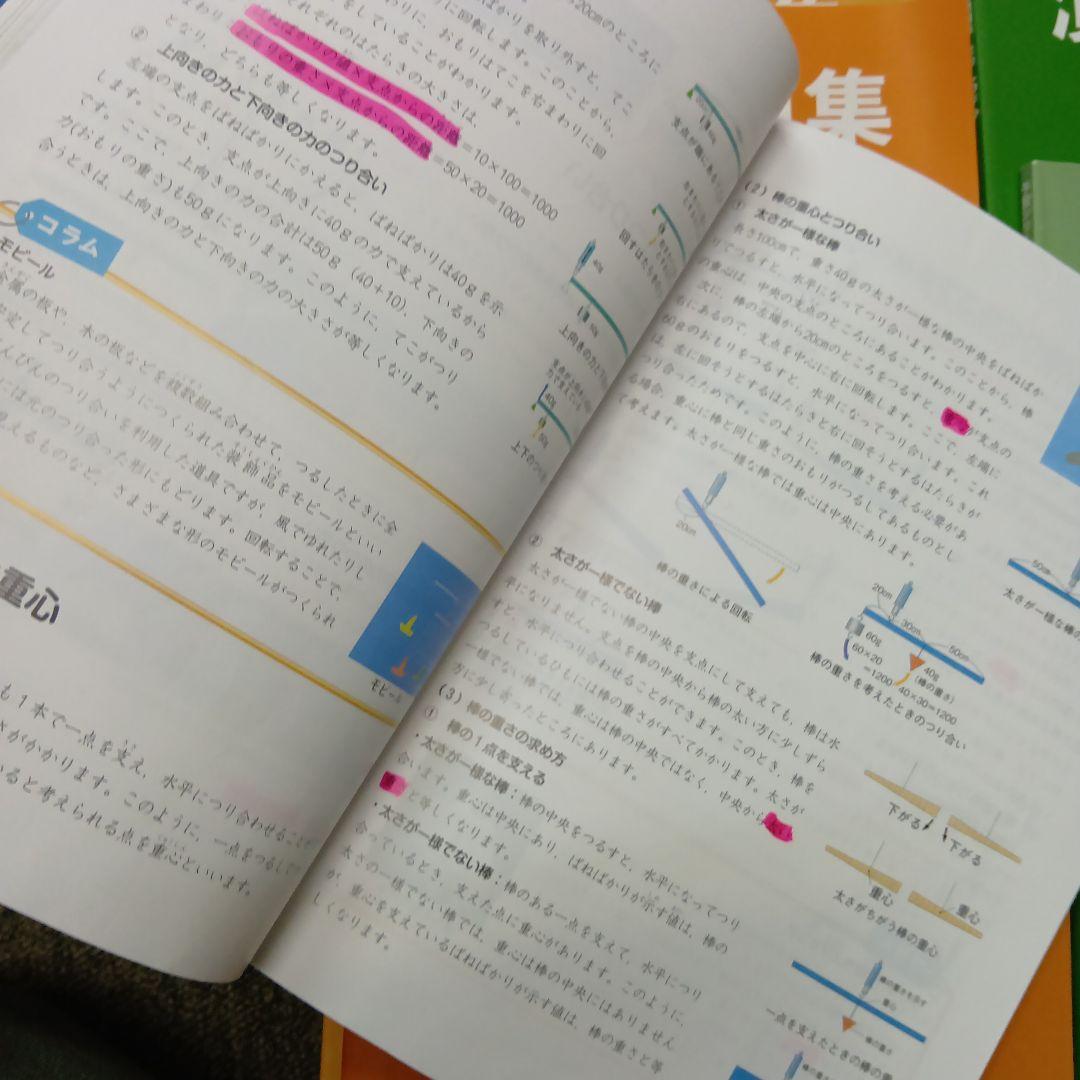 20cmのところに
ばかりを取り外すと、てこ
わりに、おもりはてこを右まわりに回
に回転します。このことから、
をしていることがわかります。
れぞれのはたらきの大きさは、
ばねばかりの値×支点からの距離=10×100=1000
おもりの重さ×支点からの距離=50×20=1000
なり、どちらも等しくなります。
② 上向きの力と下向きの力のつり合い
左端の支点をばねばかりにかえると、ばねばかりは40gを示
ます。このとき、支点が上向きに40gの力で支えているから
です。ここで、上向きの力の合計は50g(40+10)、下向きの
力(おもりの重さ)も50gになります。このように、てこがつり
合うときは、上向きの力と下向きの力の大きさが等しくなります。
コラム
モビール
金属の板や、木の板などを複数組み合わせて、つるしたときに全
定してつり合うようにつくられた装飾品をモビールといい
んびんのつり合いを利用した道具ですが、風でゆれたりし
には元のつり合った形にもどります。回転することで、
見えるものなど、さまざまな形のモビールがつくられ
モビール
重心
も1本で一点を支え、水平につり合わせること
さがかかります。このように、一点をつるして
いると考えられる点を重心といいます。
20cm
支点が端にあ
回すはたらき
40g
上向きの力と
40g
50g
上下のつ
(2) 棒の重心とつり合い
① 太さが一様な棒
長さ100cmで、重さ40gの太さが一様な棒の中央をばねばか
りでつるすと、水平になってつり合います。このことから、棒
の重心は、中央の支点のところにあることがわかります。
次に、棒の左端から20cmのところをつるすと、重心が支点の
右にあるので、支点を中心に右に回転します。ここで、左端に
60gのおもりをつるすと、水平になってつり合います。これ
は、左に回そうとするはたらきと右に回そうとするはたらきが
つり合ったためです。このように、棒の重さを考える必要があ
る場合、重心に棒と同じ重さのおもりがつるしてあるものとし
て考えます。太さが一様な棒では重心は中央にあります。
20cm
棒の重さによる回転
50cm
太さが一様な棒の
20cm
30cm
50cm
60g
60×20
=1200
40g
(棒の重さ)
40×30=1200
棒の重さを考えたときのつり合い
② 太さが一様でない棒
太さが一様でない棒の中央を支点にして支えても、棒は水
平になりません。支点を棒の中央から棒の太い方に少しずら
すと、水平につり合わせることができます。このとき、棒を
つるしているひもには棒の重さがすべてかかります。太さが
一様でない棒では、重心は棒の中央ではなく、中央から太い
方に少し寄ったところにあります。
下がる
下がる
重心
重心
太さがちがう棒の重心
(3) 棒の重さの求め方
① 棒の1点を支える
・太さが一様な棒:棒の中央をつるすと、水平になってつり
合います。重心は中央にあり、ばねばかりが示す値は、棒の
と等しくなります。
・太さが一様でない棒:棒のある一点を支えて、水平につり
合っているとき、支えた点に重心があります。このように、
太さの一様でない棒では、重心は棒の中央にはありません
が、重心を支えているばねばかりが示す値は、棒の重さと等
しくなります。
棒の重さを示す
重心
棒の重さ
一点を支えたときの棒の重
集